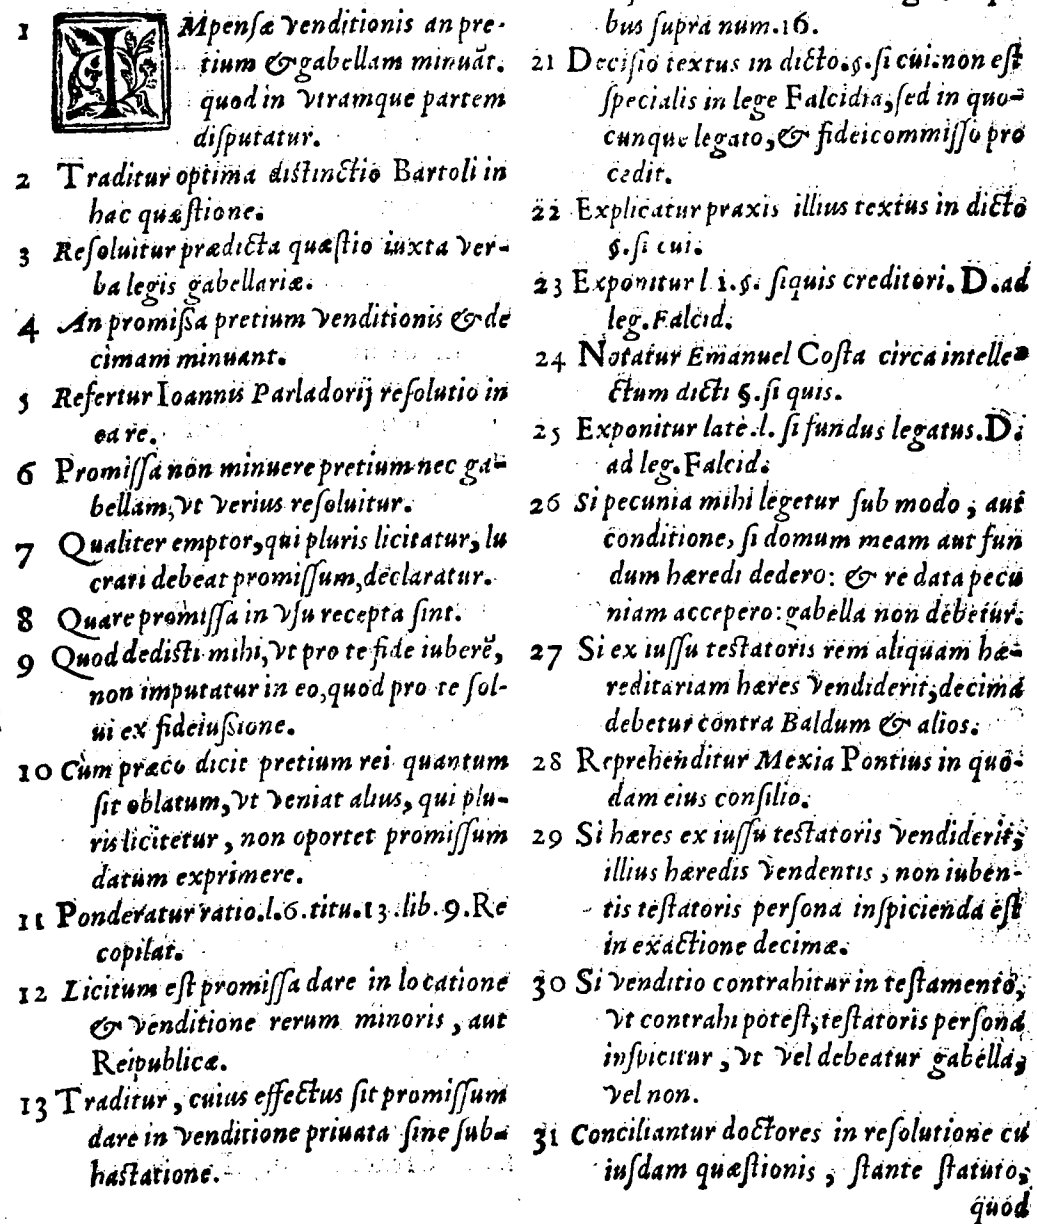 1 IMpensæ venditionis an pre-
tium & gabellam minuāt.
quod in vtramque partem
disputatur.
2 Traditur optima distinctio Bartoli in
hac quæstione.
3 Resoluitur prædicta quæstio iuxta ver-
ba legis gabellariæ.
4 An promissa pretium venditionis & de
cimam minuant.
5 Refertur Ioannis Parladorij resolutio in
ea re.
6 Promissa non minuere pretium nec ga-
bellam, vt verius resoluitur.
7 Qualiter emptor, qui pluris licitatur, lu
crari debeat promissum, declaratur.
8 Quare promissa in vsu recepta sint.
9 Quod dedisti mihi, vt pro te fide iuberē,
non imputatur in eo, quod pro te sol-
ui ex fideiussione.
10 Cùm præco dicit pretium rei quantum
sit oblatum, vt veniat alius, qui plu-
ris licitetur, non oportet promissum
datum exprimere.
11 Ponderatur ratio.l.6.titu.13.lib.9.Re
copilat.
12 Licitum est promissa dare in locatione
& venditione rerum minoris, aut
Reipublicæ.
13 Traditur, cuius effectus sit promissum
dare in venditione priuata sine sub-
hastatione.
bus supra num.16.
21 Decisio textus in dicto.§.si cui.non est
specialis in lege Falcidia, sed in quo-
cunque legato, & fideicommisso pro
cedit.
22 Explicatur praxis illius textus in dicto
§.si cui.
23 Exponitur l.1.§.siquis creditori.D.ad
leg.Falcid.
24 Notatur Emanuel Costa circa intelle-
ctum dicti §.si quis.
25 Exponitur latè.l.si fundus legatus.D.
ad leg.Falcid.
26 Si pecunia mihi legetur sub modo, aut
conditione, si domum meam aut fun
dum hæredi dedero: & re data pecu
niam accepero: gabella non debetur.
27 Si ex iussu testatoris rem aliquam hæ-
reditariam hæres vendiderit, decima
debetur contra Baldum & alios.
28 Reprehenditur Mexia Pontius in quo-
dam eius consilio.
29 Si hæres ex iussu testatoris vendiderit,
illius hæredis vendentis, non iuben-
tis testatoris persona inspicienda est
in exactione decimæ.
30 Si venditio contrahitur in testamento,
vt contrahi potest, testatoris persona
inspicitur, vt vel debeatur gabella,
vel non.
31 Conciliantur doctores in resolutione cu
iusdam quæstionis, stante statuto,
quod